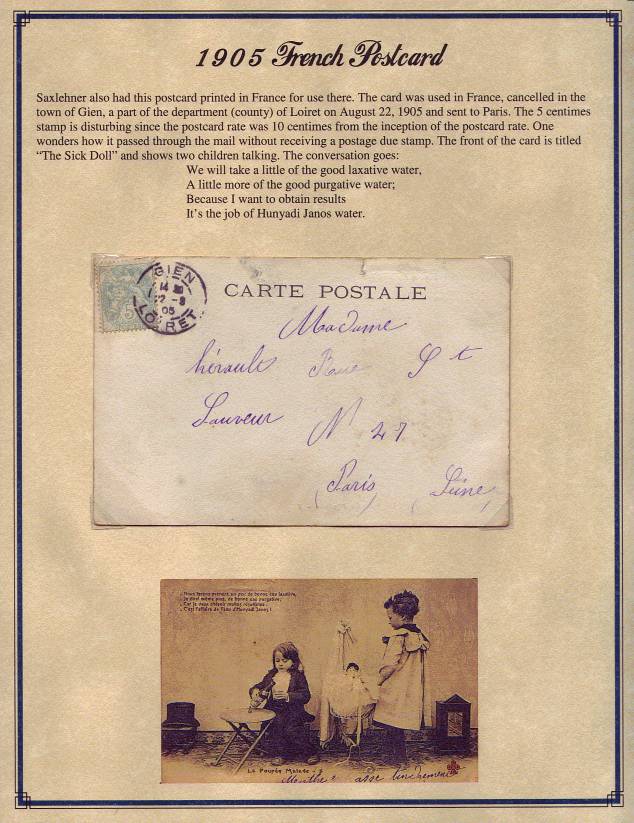 1905 French Postcard
Saxlehner also had this postcard printed in France for use there. The card was used in France, cancelled in the
town of Gien, a part of the department (county) of Loiret on August 22, 1905 and sent to Paris. The 5 centimes
stamp is disturbing since the postcard rate was 10 centimes from the inception of the postcard rate. One
wonders how it passed through the mail without receiving a postage due stamp. The front of the card is titled
“The Sick Doll” and shows two children talking. The conversation goes:
We will take a little of the good laxative water,
A little more of the good purgative water;
Because I want to obtain results
It's the job of Hunyadi Janos water.
GIEN
LOIRET
05
CARTE POSTALE
Madame
hérault Rue St
Sauveur N 27
(Paris) (Seine)
de bonne eau laxative,
de bonne eau purgative;
Car je veux obtenir
C'est l'affaire de l'eau d'Hunyadi Janos !
La Poupée Malade - 3